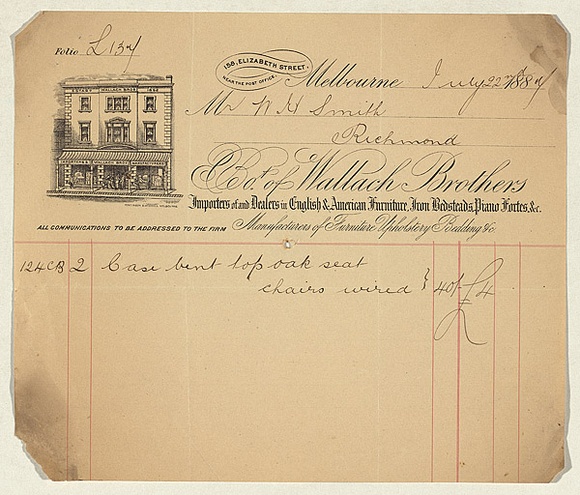 Folio L 137
158, ELIZABETH STREET.
NEAR THE POST OFFICE.
Melbourne July 22nd 1887
Mr W H Smith
Richmond
ESTABD WALLACH BROS
Bot. of Wallach Brothers
Importers of and Dealers in English & American Furniture, Iron Bedsteads, Piano Fortes, &c.
ALL COMMUNICATIONS TO BE ADDRESSED TO THE FIRM
Manufacturers of Furniture Upholstery Bedding &c
124CB 2 Case bent top oak seat
chairs wired } 40/- £4